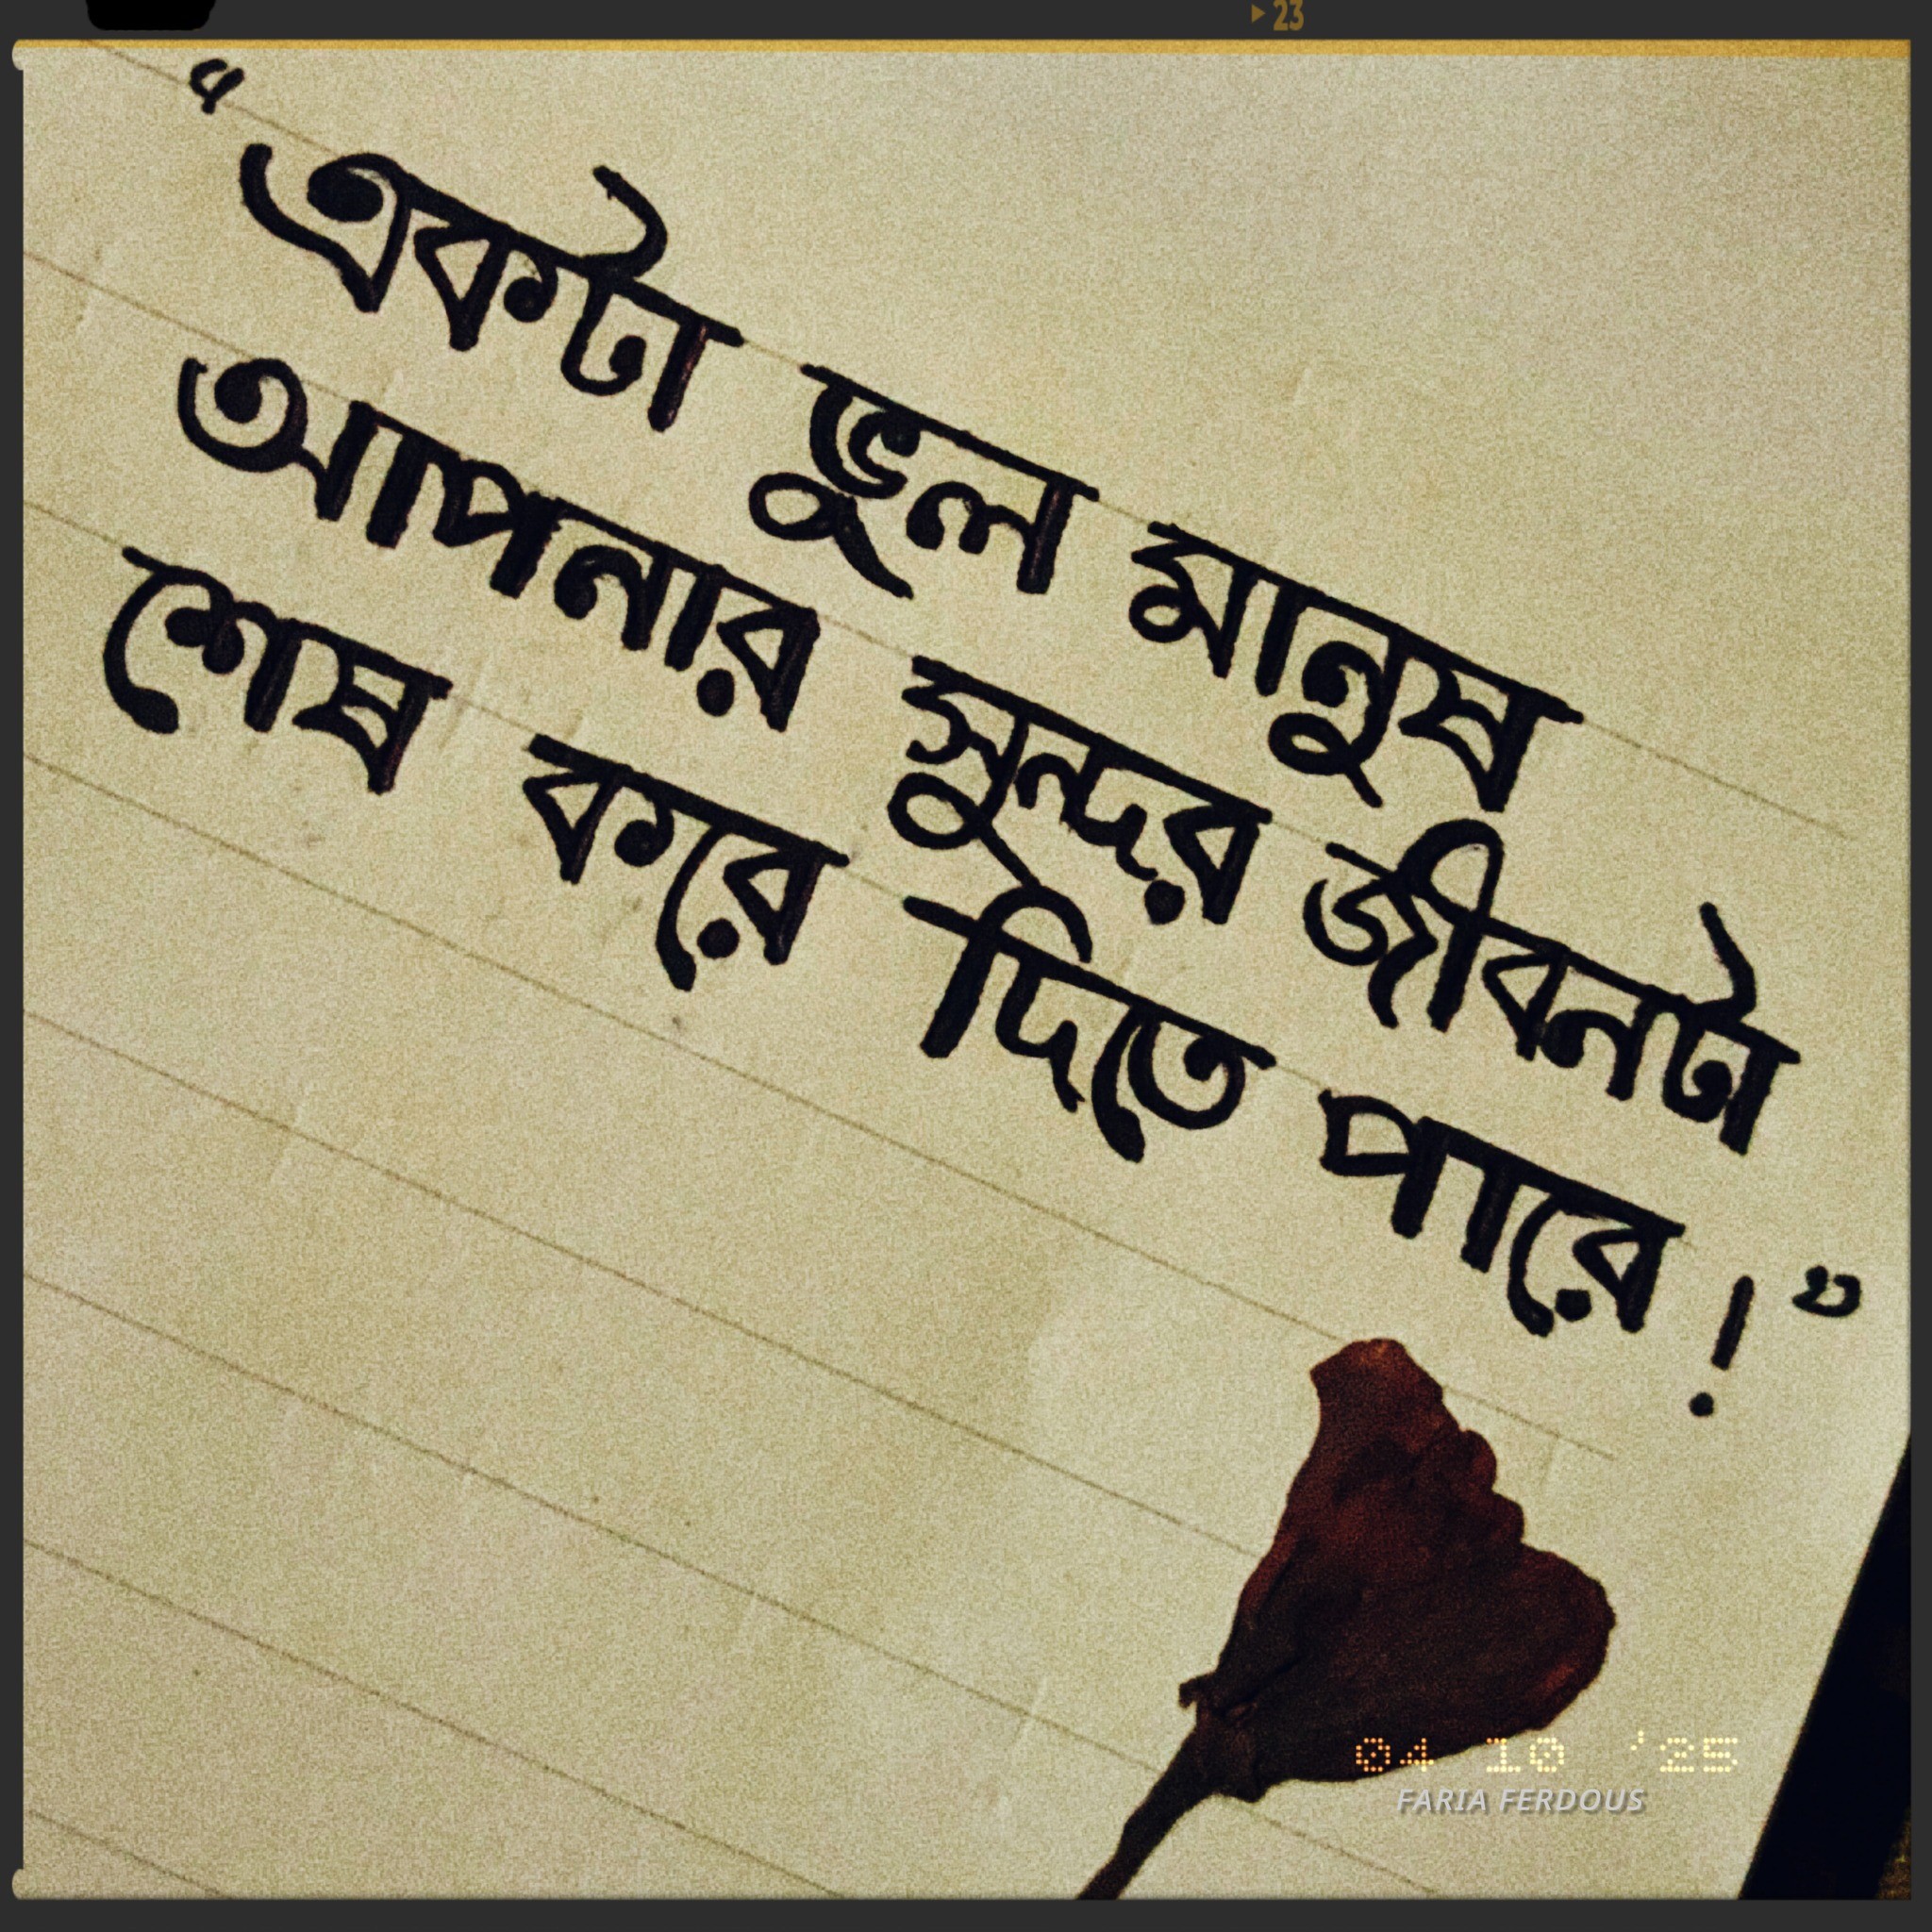 ▸ 23
“একটা ভুল মানুষ
আপনার সুন্দর জীবনটা
শেষ করে দিতে পারে!”
04 10 '25
FARIA FERDOUS